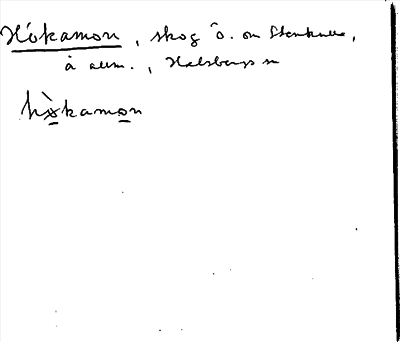 Hökamon, skog ö. om Stenkulla,
å allm., Halsbergs sn
hökamon